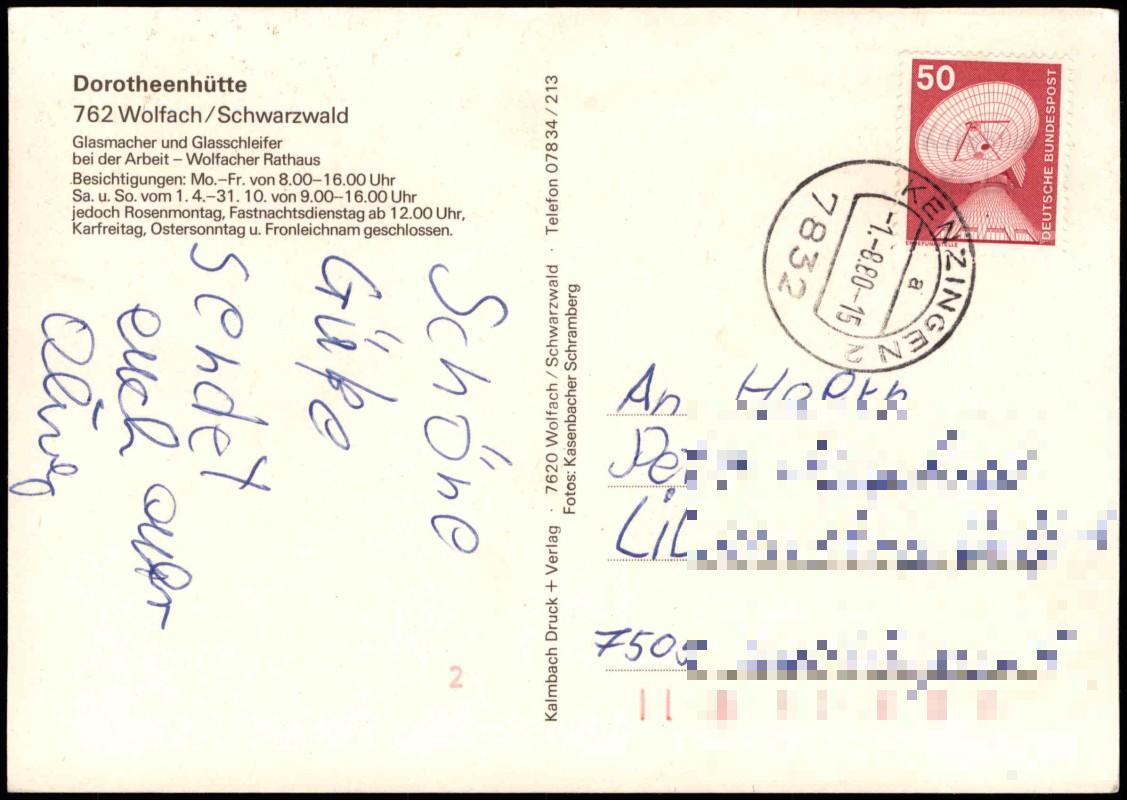 Dorotheenhütte
762 Wolfach/Schwarzwald
Glasmacher und Glasschleifer
bei der Arbeit – Wolfacher Rathaus
Besichtigungen: Mo.–Fr. von 8.00–16.00 Uhr
Sa. u. So. vom 1. 4.–31. 10. von 9.00–16.00 Uhr
jedoch Rosenmontag, Fastnachtsdienstag ab 12.00 Uhr,
Karfreitag, Ostersonntag u. Fronleichnam geschlossen.
Schöne
Grüße
sendet
euch
Kalmbach Druck + Verlag · 7620 Wolfach/Schwarzwald · Telefon 07834/213
Fotos: Kasenbacher Schramberg
50
DEUTSCHE BUNDESPOST
KENZINGEN 2
a
-1.-8.80-15
7832
An
2